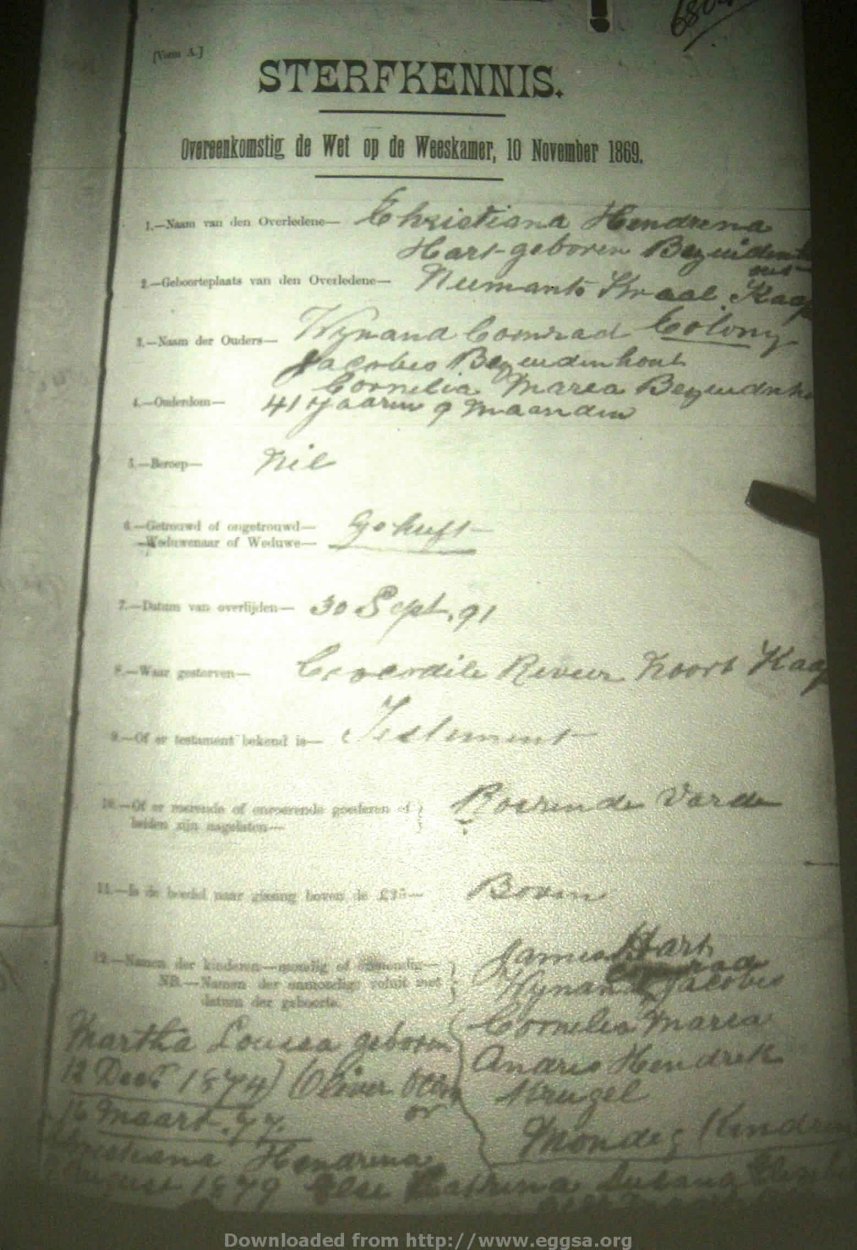 [Vorm A.]
STERFKENNIS.
Overeenkomstig de Wet op de Weeskamer, 10 November 1869.
1.—Naam van den Overledene— Christiana Hendrena
Hart geboren Bezuidenhout
2.—Geboorteplaats van den Overledene— Kraal Kaap
Colony
3.—Naam der Ouders— Wynand Coenrad
Jacobus Bezuidenhout
Cornelia Maria
4.—Ouderdom— 41 Jaaren 9 Maanden
5.—Beroep— Nil
6.—Getrouwd of ongetrouwd—
—Weduwenaar of Weduwe—
7.—Datum van overlijden— 30 Sept. 91
8.—Waar gestorven— Revier Noort Kaap
9.—Of er testament bekend is— Testement
10.—Of er roerende of onroerende goederen of
beiden zijn nagelaten— Roerende
11.—Is de boedel naar gissing boven de £15— Boven
12.—Namen der kinderen—mondig of onmondig— James Hart
NB.—Namen der onmondige voluit met Wynand Jacobus
datum der geboorte.
Cornelia Maria
Andries Hendrik
Krugel
Mondeg Kinderen
Martha Louisa geboren
12 Decb 1874 Oliver
or
16 Maart. 77.
Christiana Hendrena
August 1879 Else Catrina Susana
Downloaded from http://www.eggsa.org